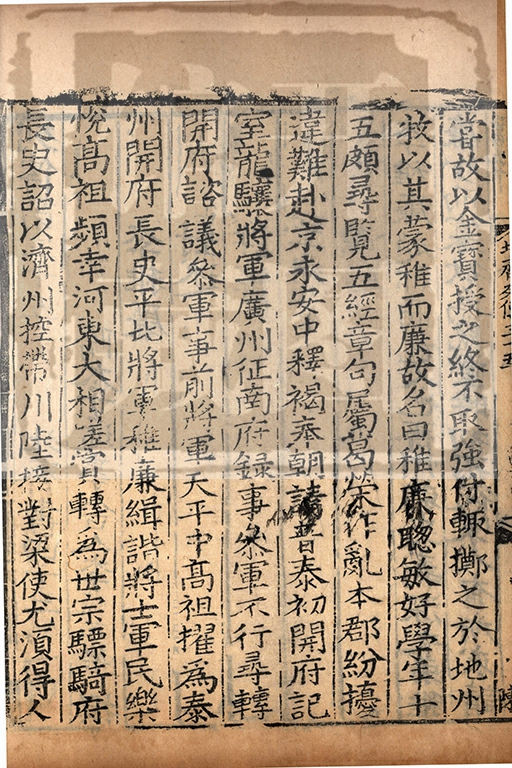 嘗故以金寶授之終不取強付輒擲之於地州
牧以其蒙稚而廉故名曰稚廉聰敏好學年十
五頗尋覽五經章句屬葛榮作亂本郡紛擾
違難赴京永安中釋褐奉朝請普泰初開府記
室龍驤將軍廣州征南府録事叅軍不行尋轉
開府諮議叅軍事前將軍天平中髙祖擢爲泰
州開府長史平北將軍稚廉緝諧將士軍民樂
悅髙祖頻幸河東大相嗟賞轉爲世宗驃騎府
長史詔以濟州控帶川陸接對梁使尤湏得人